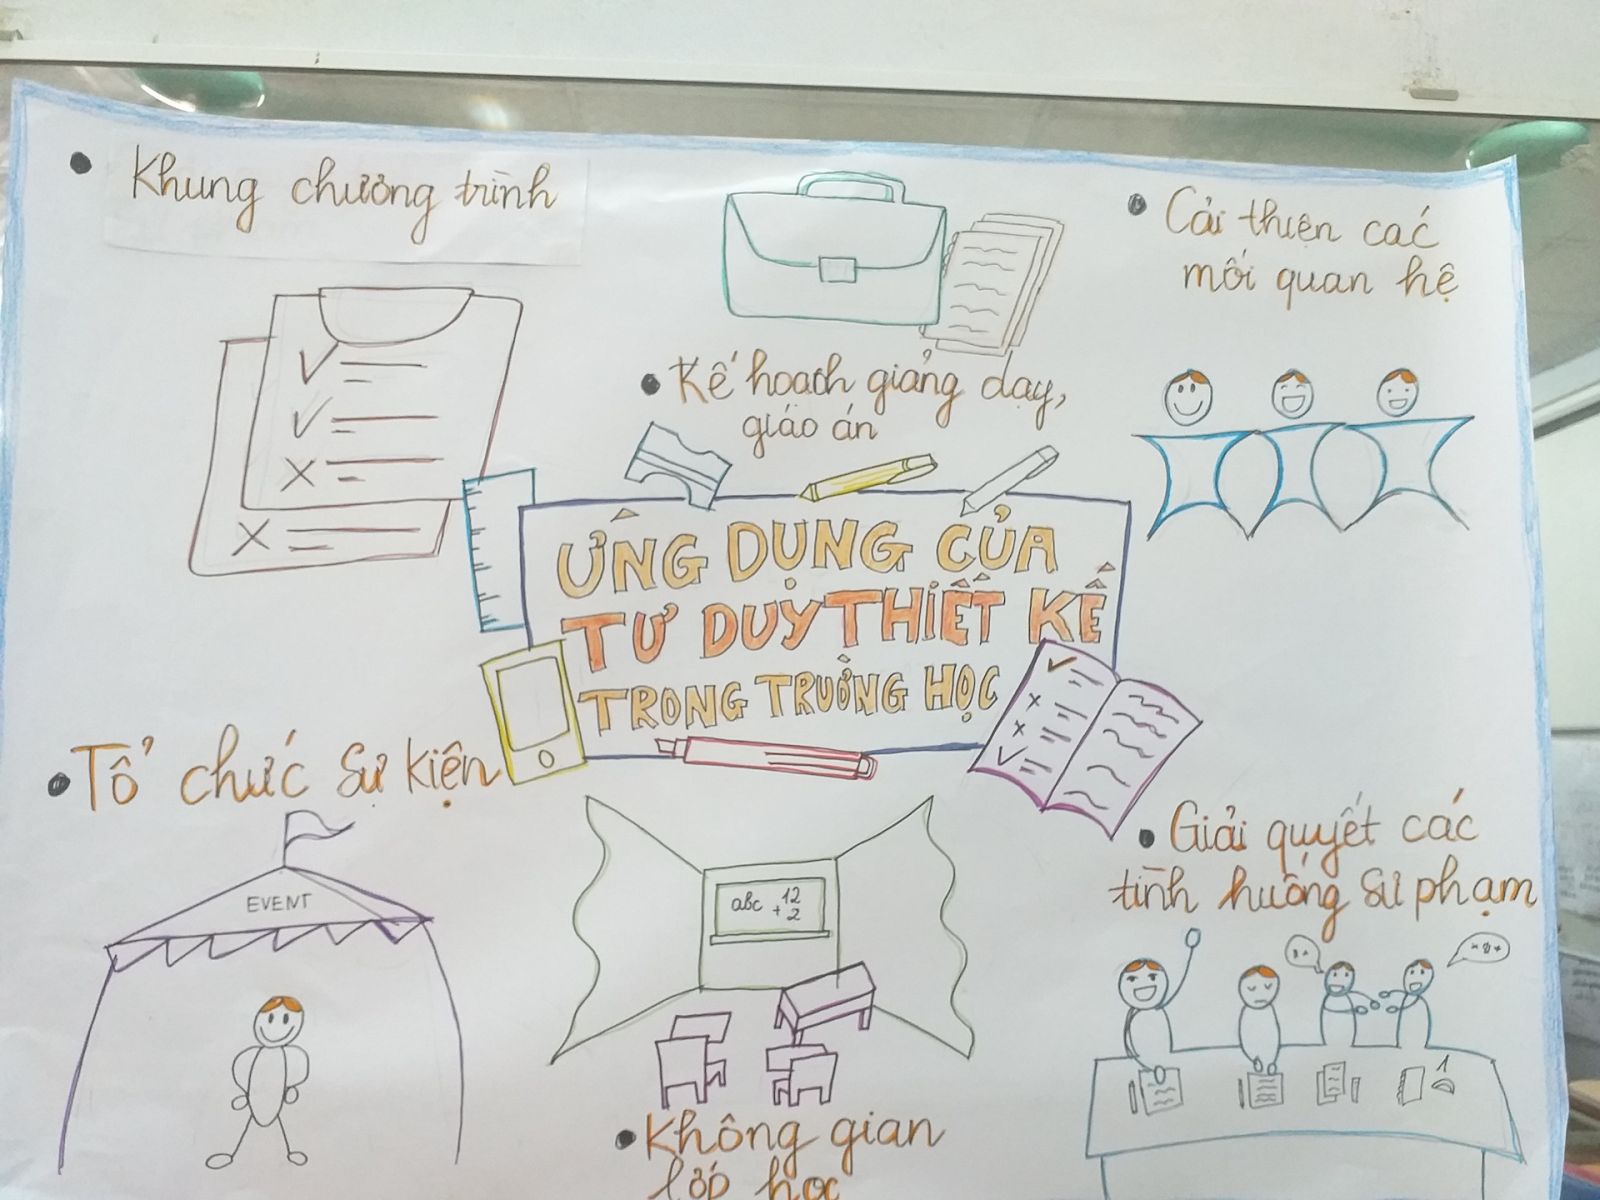 • Khung chương trình
• Cải thiện các
mối quan hệ
• Kế hoạch giảng dạy,
giáo án
ỨNG DỤNG CỦA
TƯ DUY THIẾT KẾ
TRONG TRƯỜNG HỌC
• Tổ chức sự kiện
EVENT
abc 12
+ 2
• Giải quyết các
tình huống sư phạm
• Không gian
lớp học